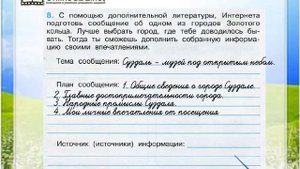 8. С помощью дополнительной литературы, Интернета
подготовь сообщение об одном из городов Золотого
кольца. Лучше выбрать город, где тебе доводилось бы-
вать. Тогда ты сможешь дополнить собранную информа-
цию своими впечатлениями.
Тема сообщения: Суздаль – музей под открытым небом.
План сообщения: 1. Общие сведения о городе Суздале.
2. Главные достопримечательности города.
3. Народные промыслы Суздаля.
4. Мои личные впечатления от посещения
Источник (источники) информации: